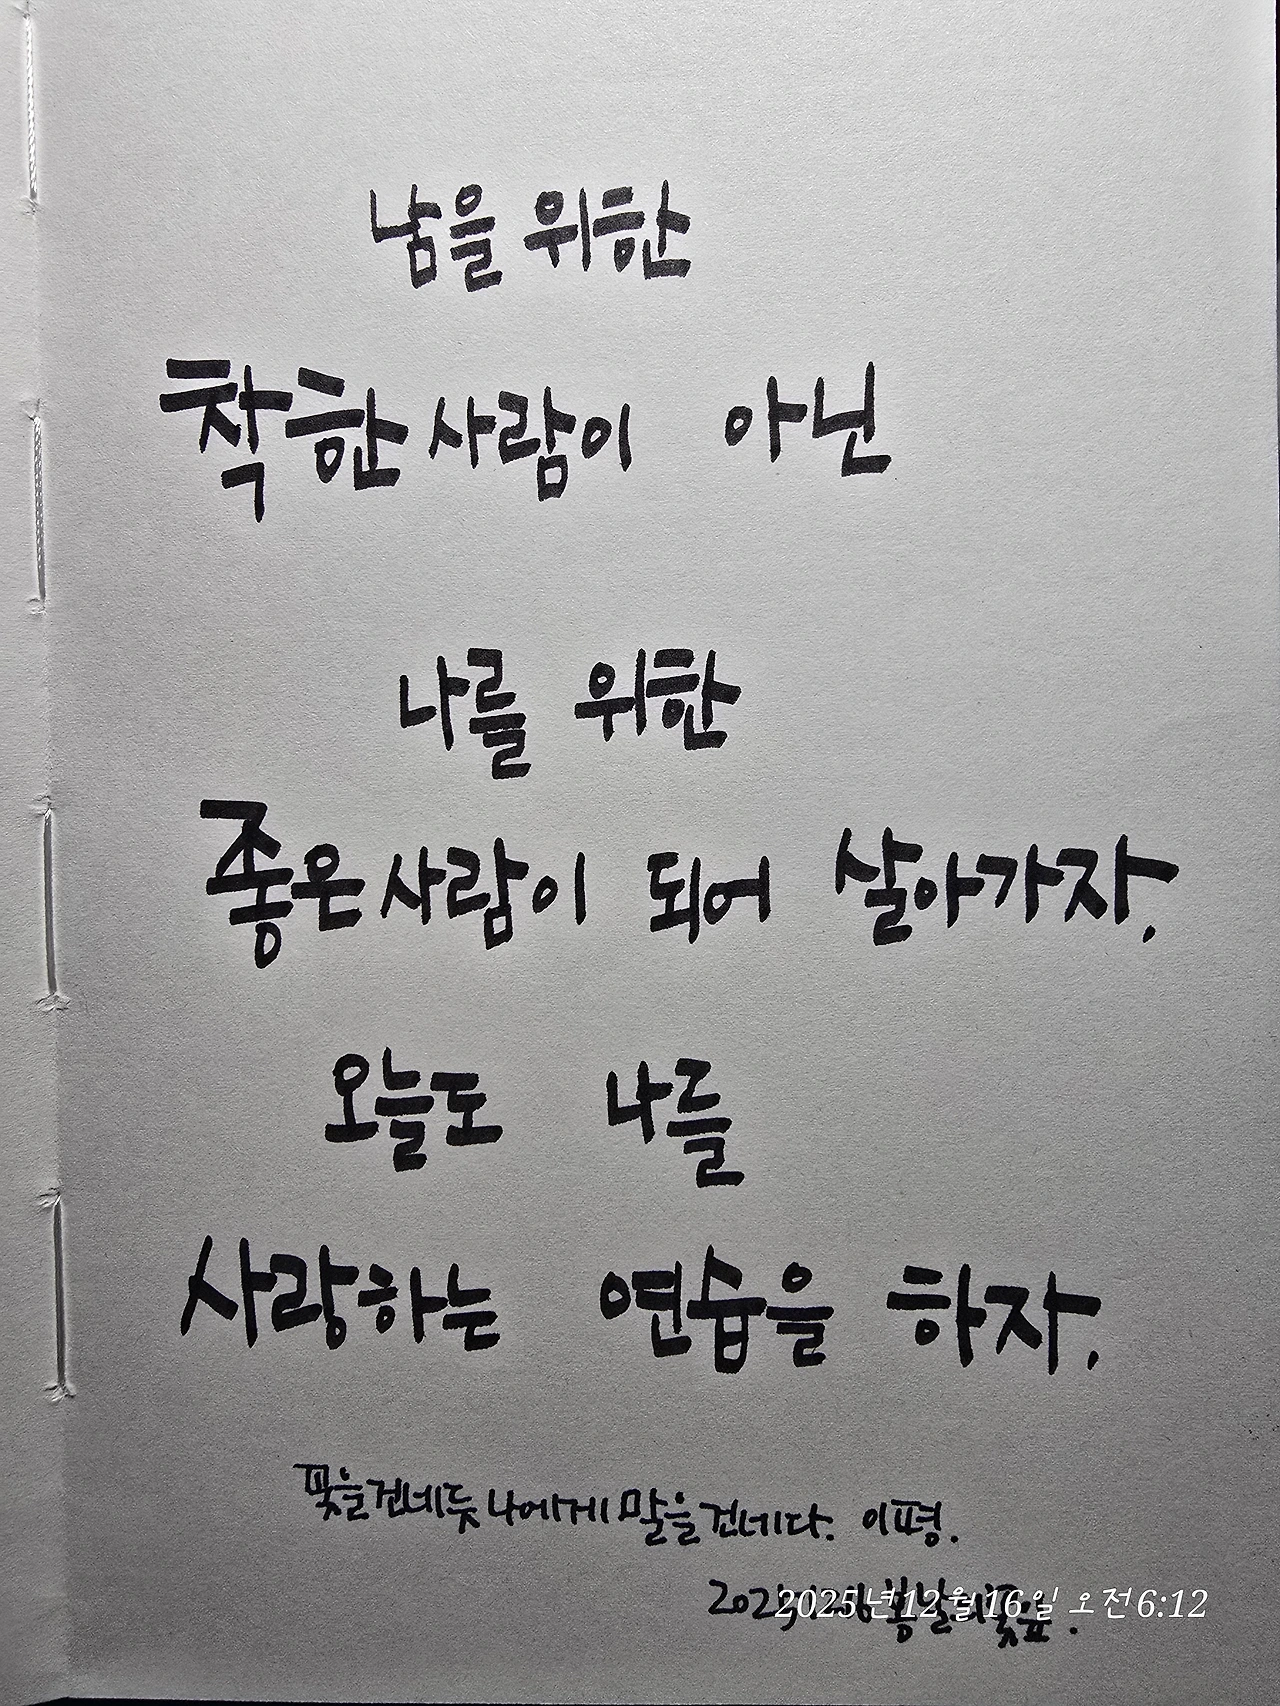 남을 위한
착한 사람이 아닌
나를 위한
좋은 사람이 되어 살아가자.
오늘도 나를
사랑하는 연습을 하자.
꽃을 건네듯 나에게 말을 건네다. 이평.
2025년 12월 16일 오전 6:12